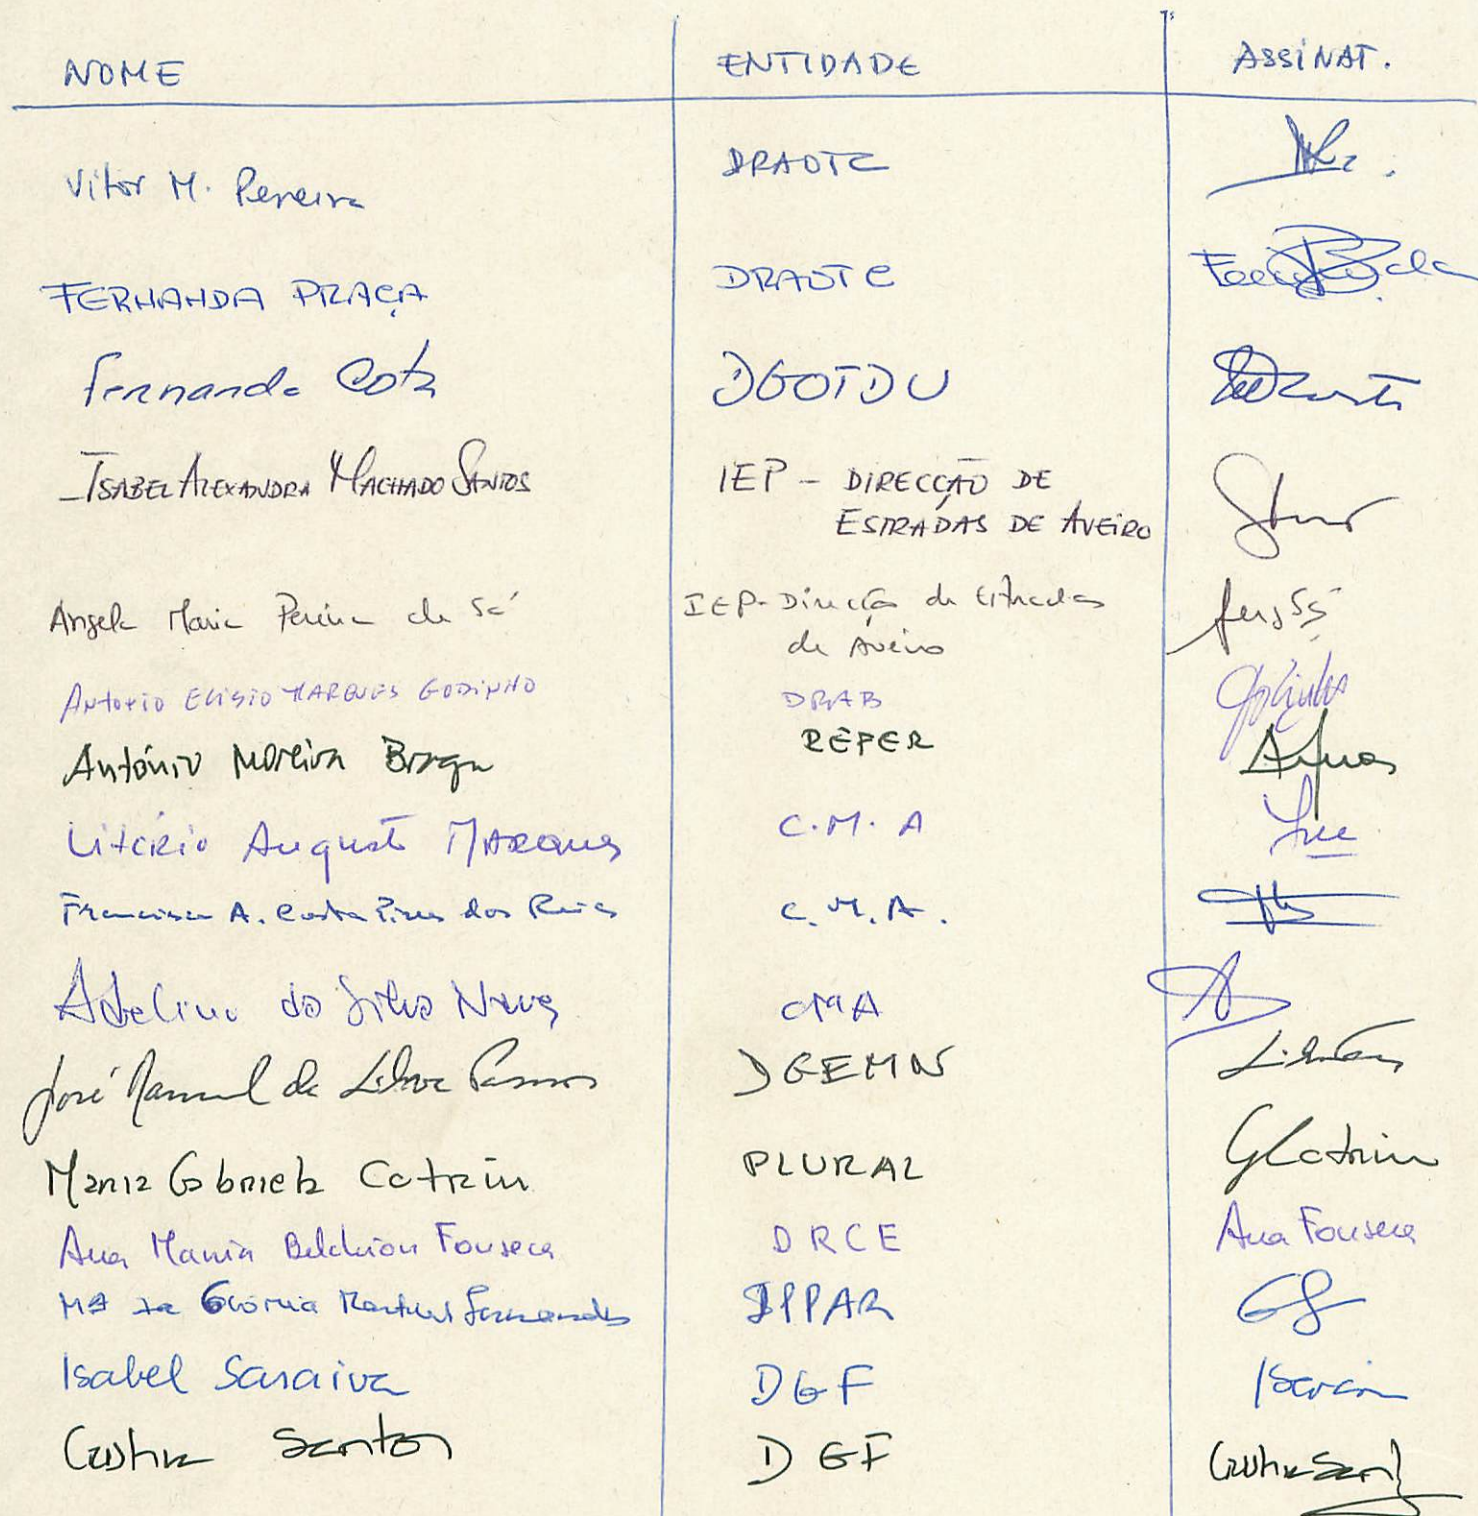 NOME ENTIDADE ASSINAT.
Vitor M. Pereira DRAOTC
FERNANDA PRAÇA DRAOTC
Fernanda Cota DGOTDU
ISABEL ALEXANDRA MACHADO SANTOS IEP - DIRECÇÃO DE
ESTRADAS DE AVEIRO
Angela Maria Pereira de Sá IEP - Direcção de Estradas
de Aveiro
Antonio ELISIO MARQUES GODINHO DRAB
António Moreira Braga REFER
Litério Augusto Marques C.M.A
Francisco A. Costa Pires dos Reis C.M.A.
Adelino da Silva Neves CMA
José Manuel da Silva Passos DGEMN
Maria Gabriela Cotrim PLURAL GCotrim
Ana Maria Belchior Fonseca DRCE Ana Fonseca
Mª da Glória Martins Fernandes IPPAR
Isabel Saraiva DGF
Cristina Santos DGF